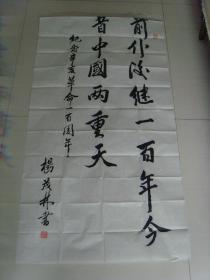 前仆後继一百年今
昔中國两重天
紀念辛亥革命一百周年
楊茂林書